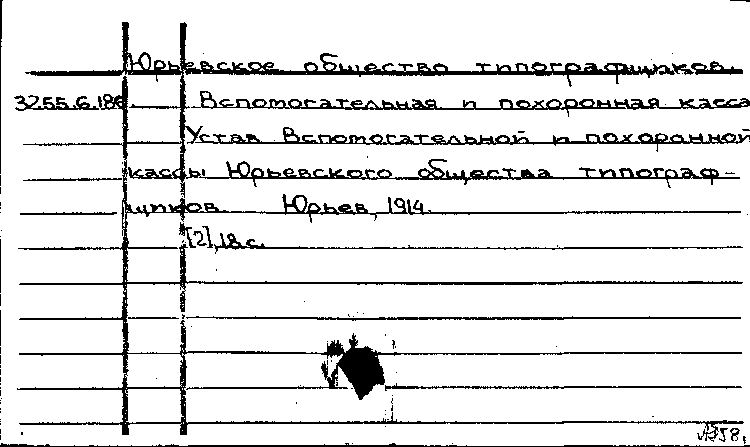 Юрьевское общество типографщиков.
3255.6.186 Вспомогательная и похоронная касса
Устав Вспомогательной и похоронной
кассы Юрьевского общества типограф-
щиков. Юрьев, 1914.
[2], 18 с.